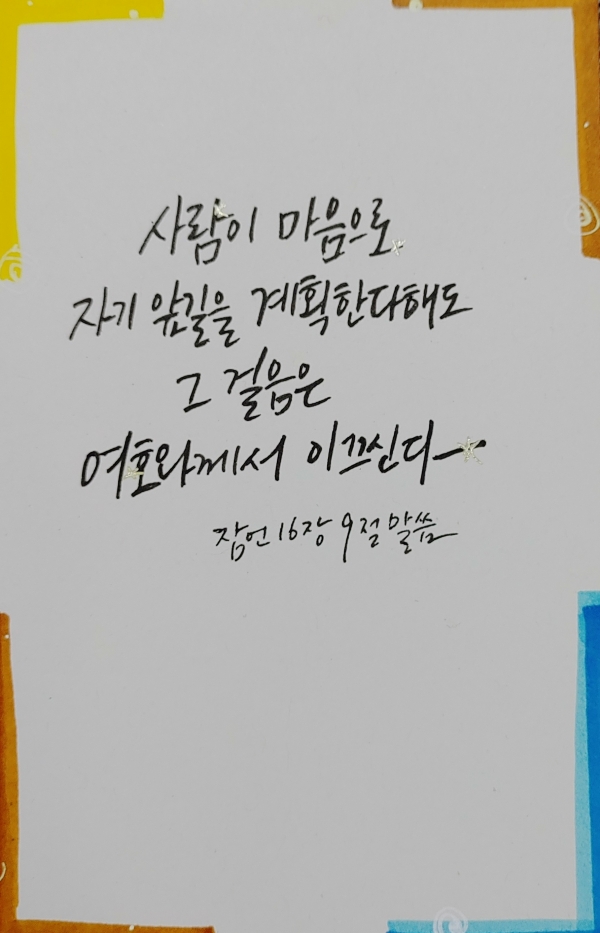 사람이 마음으로
자기 앞길을 계획한다해도
그 걸음은
여호와께서 이끄신다
잠언 16장 9절 말씀